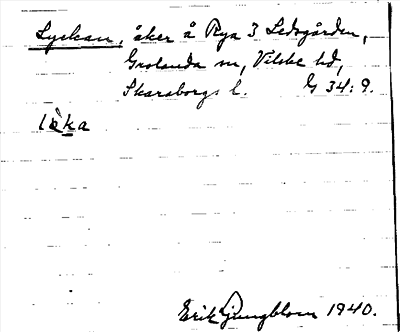 Lyckan, åker å Rya 3 Ledsgården,
Grolanda sn, Vilske hd,
Skaraborgs l. G 34:9.
Erik Ljungblom 1940.